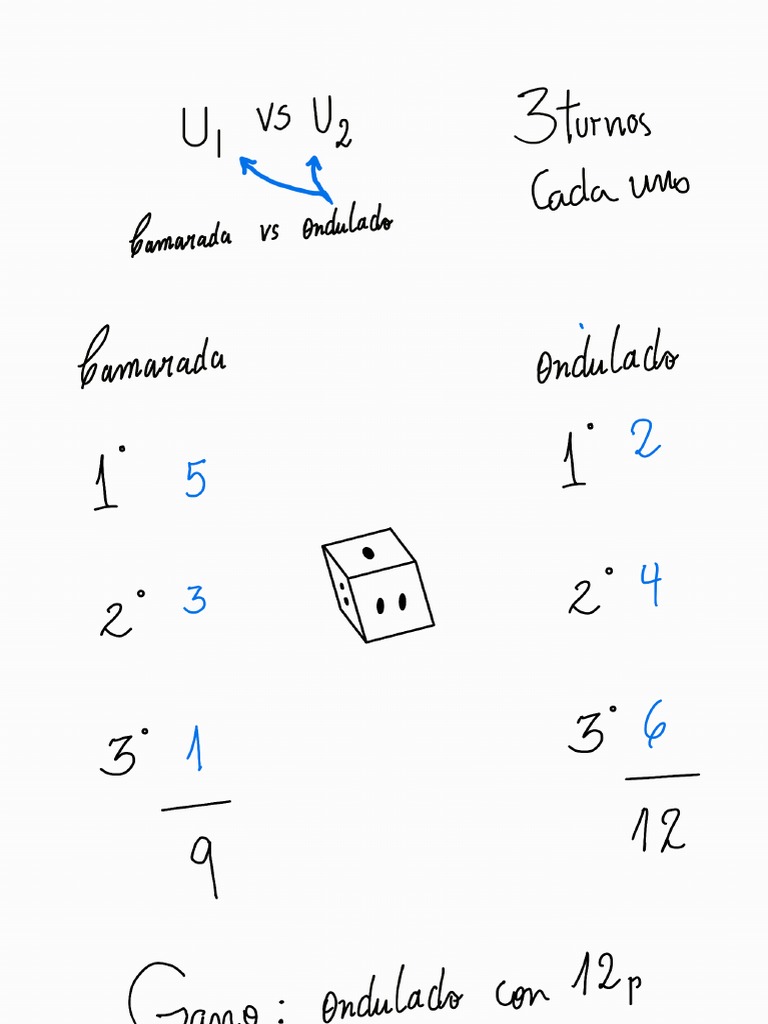 U1 vs U2
3 turnos
Cada uno
Camarada vs Ondulado
Camarada
Ondulado
1° 5
1° 2
2° 3
2° 4
3° 1
3° 6
9
12
Gano: Ondulado con 12p